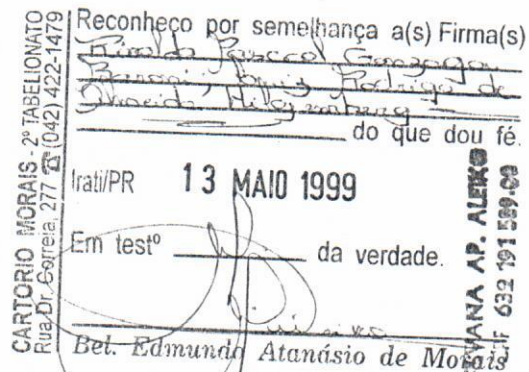 CARTORIO MORAIS - 2º TABELIONATO
Rua Dr. Correia, 277 ☎ (042) 422-1479
Reconheço por semelhança a(s) Firma(s)
Gonzaga
Rodrigo de
Almeida
do que dou fé.
Irati/PR 13 MAIO 1999
Em testº da verdade.
Bel. Edmundo Atanásio de Morais
VANA AP. ALEIXO
632 191 589-00